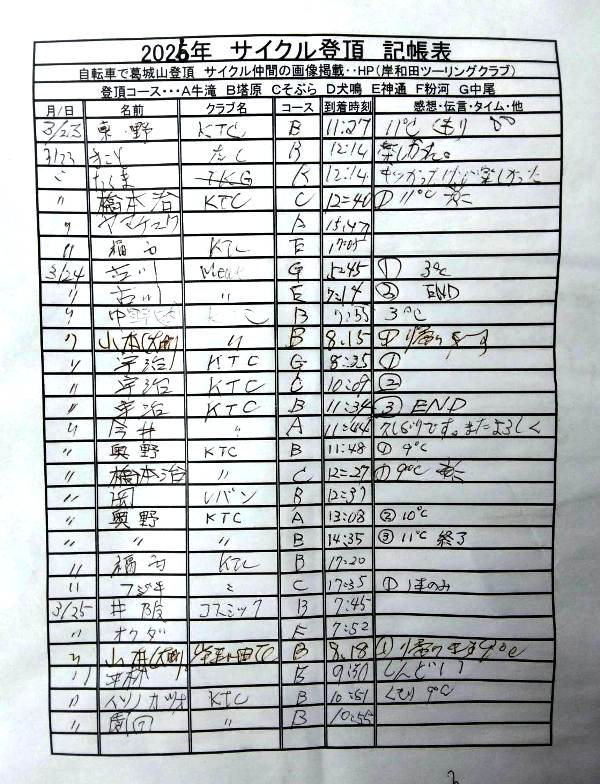 2026年 サイクル登頂 記帳表
自転車で葛城山登頂 サイクル仲間の画像掲載‥HP(岸和田ツーリングクラブ)
登頂コース･･･A牛滝 B塔原 Cそぶら D犬鳴 E神通 F粉河 G中尾
月/日 名前 クラブ名 コース 到着時刻 感想・伝言・タイム・他
3/23 東野 KTC B 11:27 11℃ くもり
3/23 B 12:14
たくま TKG 12:14
〃 橋本治 KTC C 12=40 ① 11℃
〃 ヤマチュウ A 15:47
〃 福西 KTC E
3/24 古川 G 5:45 ① 3℃
〃 古川 〃 E 7:14 ② END
〃 B 7:55 3℃
〃 山本 〃 B 8.15 ①
〃 宇治 KTC G 8:35 ①
〃 宇治 KTC C 10:09 ②
〃 宇治 KTC B 11:34 ③ END
〃 今井 〃 A 11:44 久しぶりです。またよろしく
〃 奥野 KTC B 11:48 ① 9℃
〃 橋本治 〃 C 12=27 ① 9℃
〃 岡 レバン B 12:37
〃 奥野 KTC A 13:08 ② 10℃
〃 〃 〃 B 14:35 ③ 11℃ 終了
〃 福西 KTC B 17:20
〃 C 17:35 ① 1本のみ
3/25 井阪 コスミック B 7:45
〃 オクダ 7:52
〃 山本 B 8.18 ① 9℃
〃 しんどい
〃 KTC B 10:51 くもり 9℃
〃 園田 〃 B 10:55